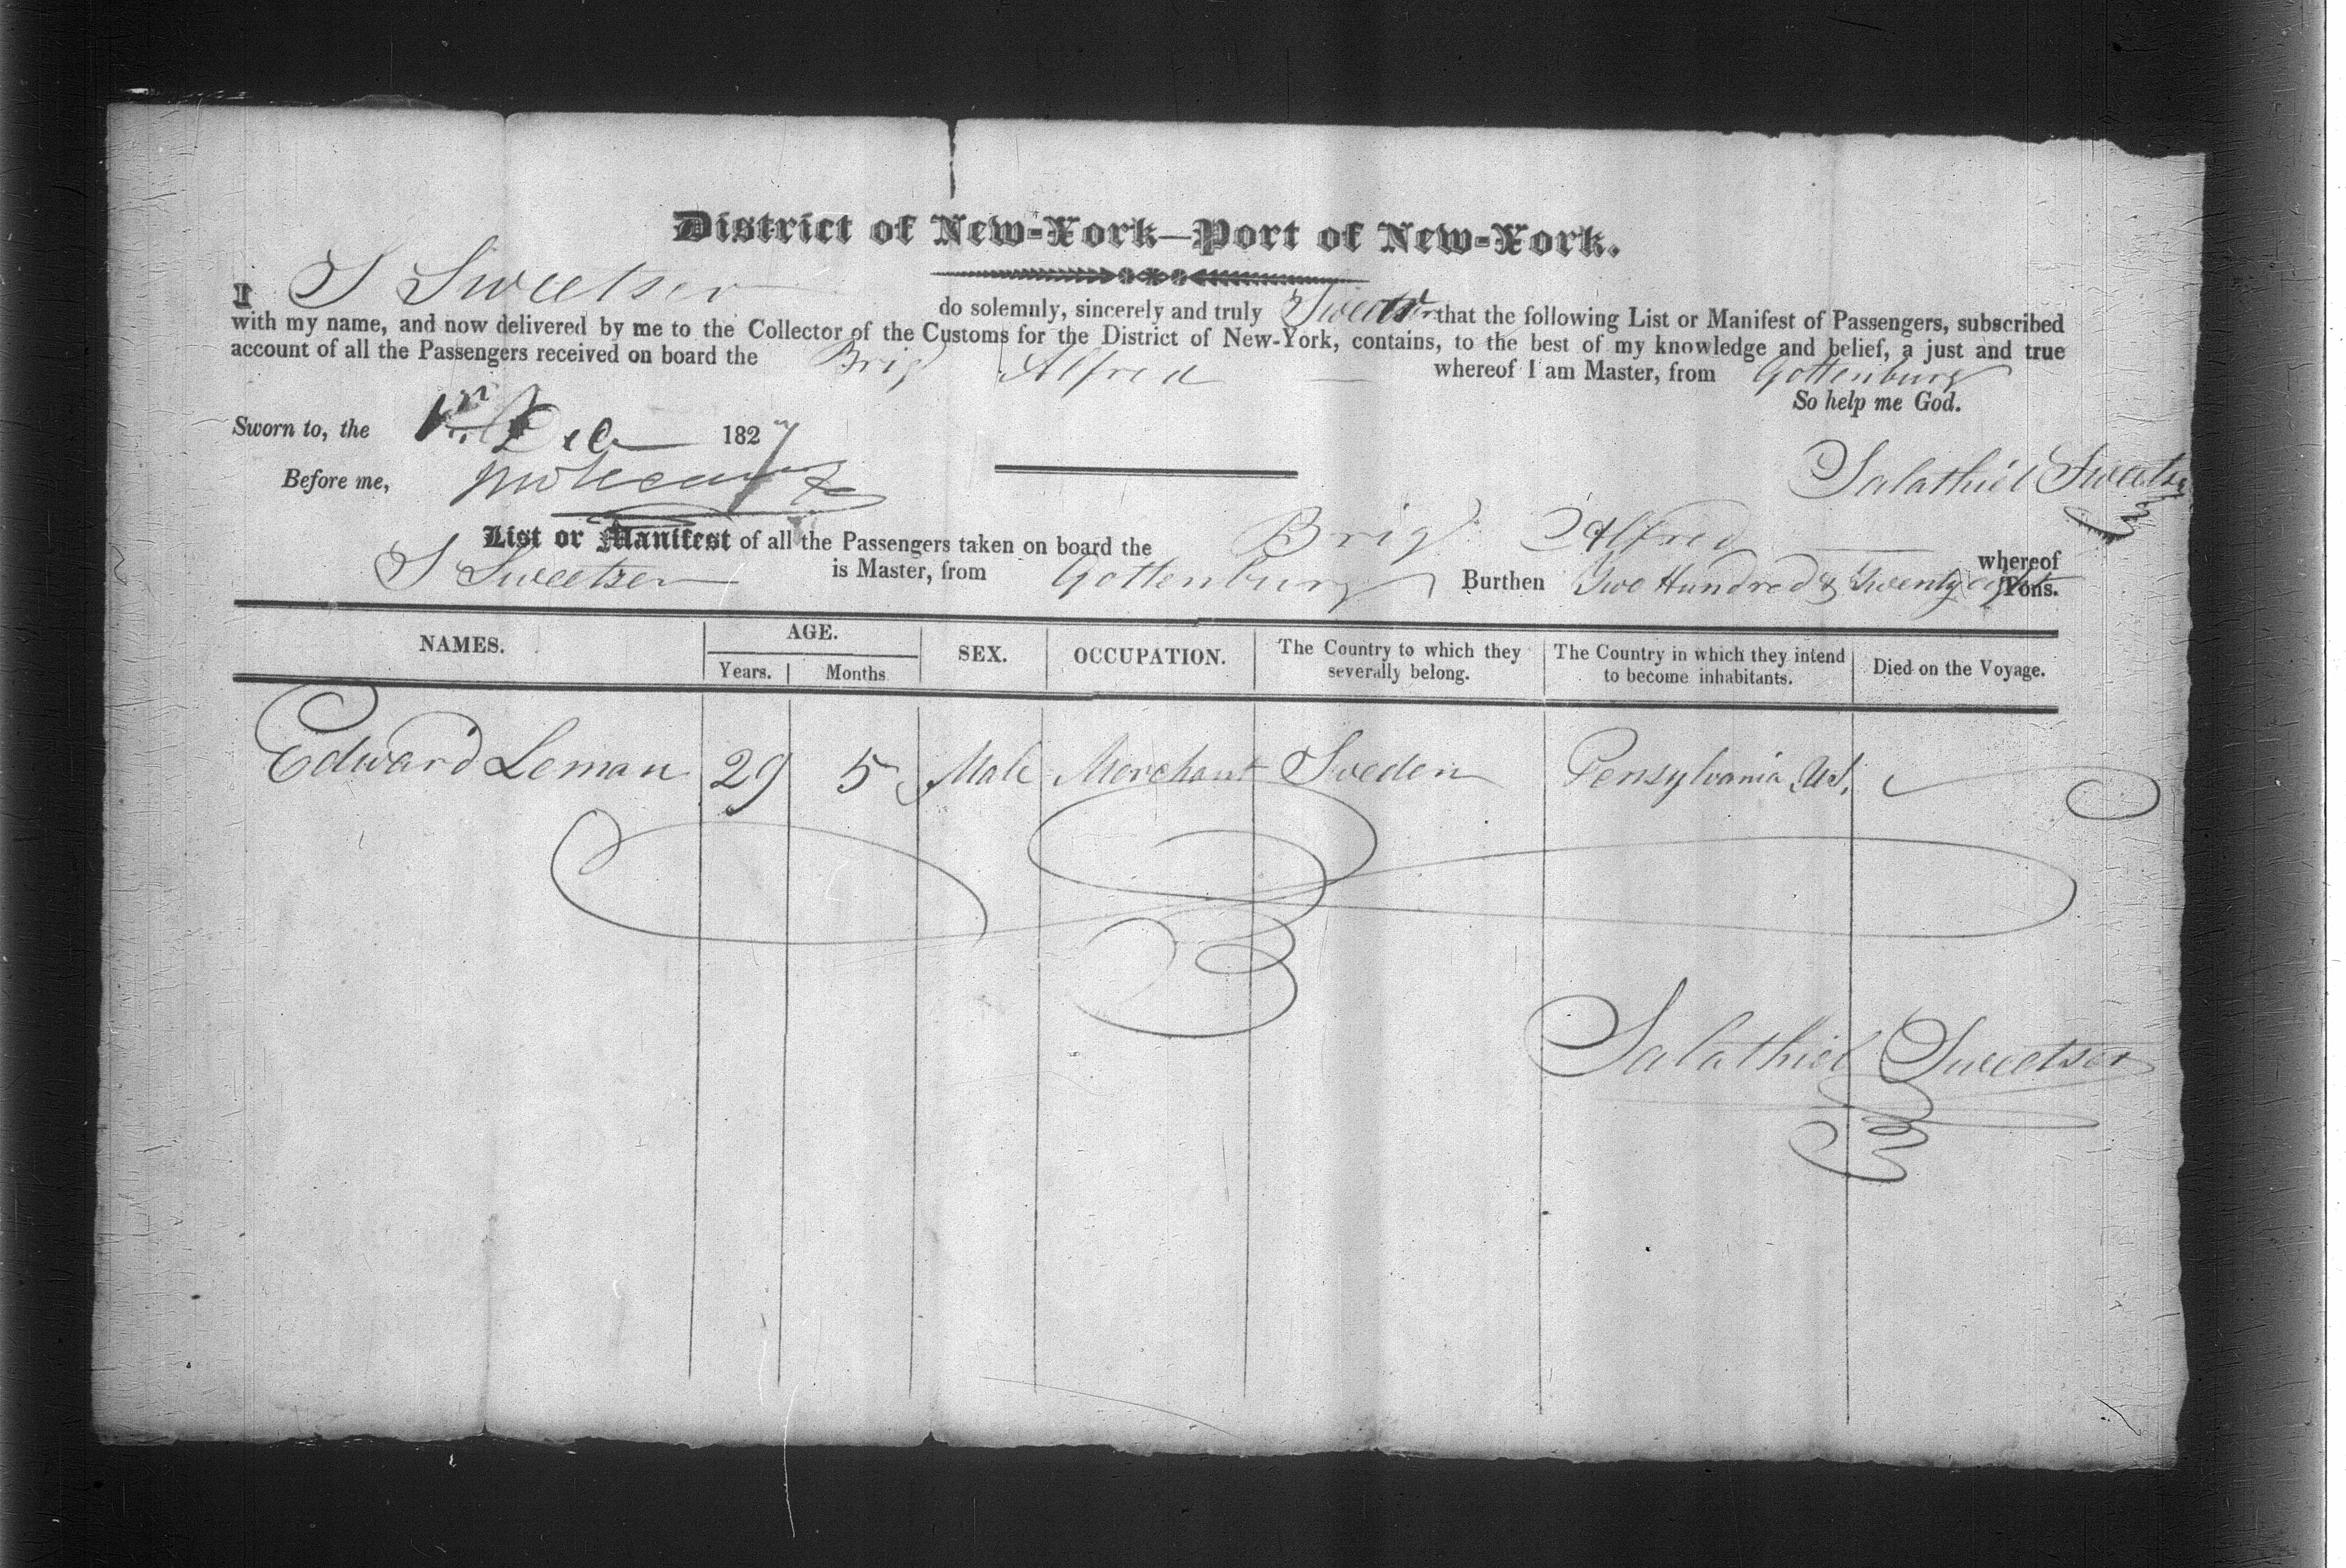 District of New-York—Port of New-York.
I S Sweetser do solemnly, sincerely and truly that the following List or Manifest of Passengers, subscribed
with my name, and now delivered by me to the Collector of the Customs for the District of New-York, contains, to the best of my knowledge and belief, a just and true
account of all the Passengers received on board the Brig Alfred whereof I am Master, from Gottenburg
So help me God.
Sworn to, the Dec 1827
Before me,
Salathiel Sweetser
List or Manifest of all the Passengers taken on board the Brig Alfred whereof
S Sweetser is Master, from Gottenburg Burthen Two Hundred & Twenty Tons.
NAMES. AGE. SEX. OCCUPATION. The Country to which they severally belong. The Country in which they intend to become inhabitants. Died on the Voyage.
Years. Months
Edward Leman 29 5 Male Merchant Sweden Pensylvania, US.
Salathiel Sweetser